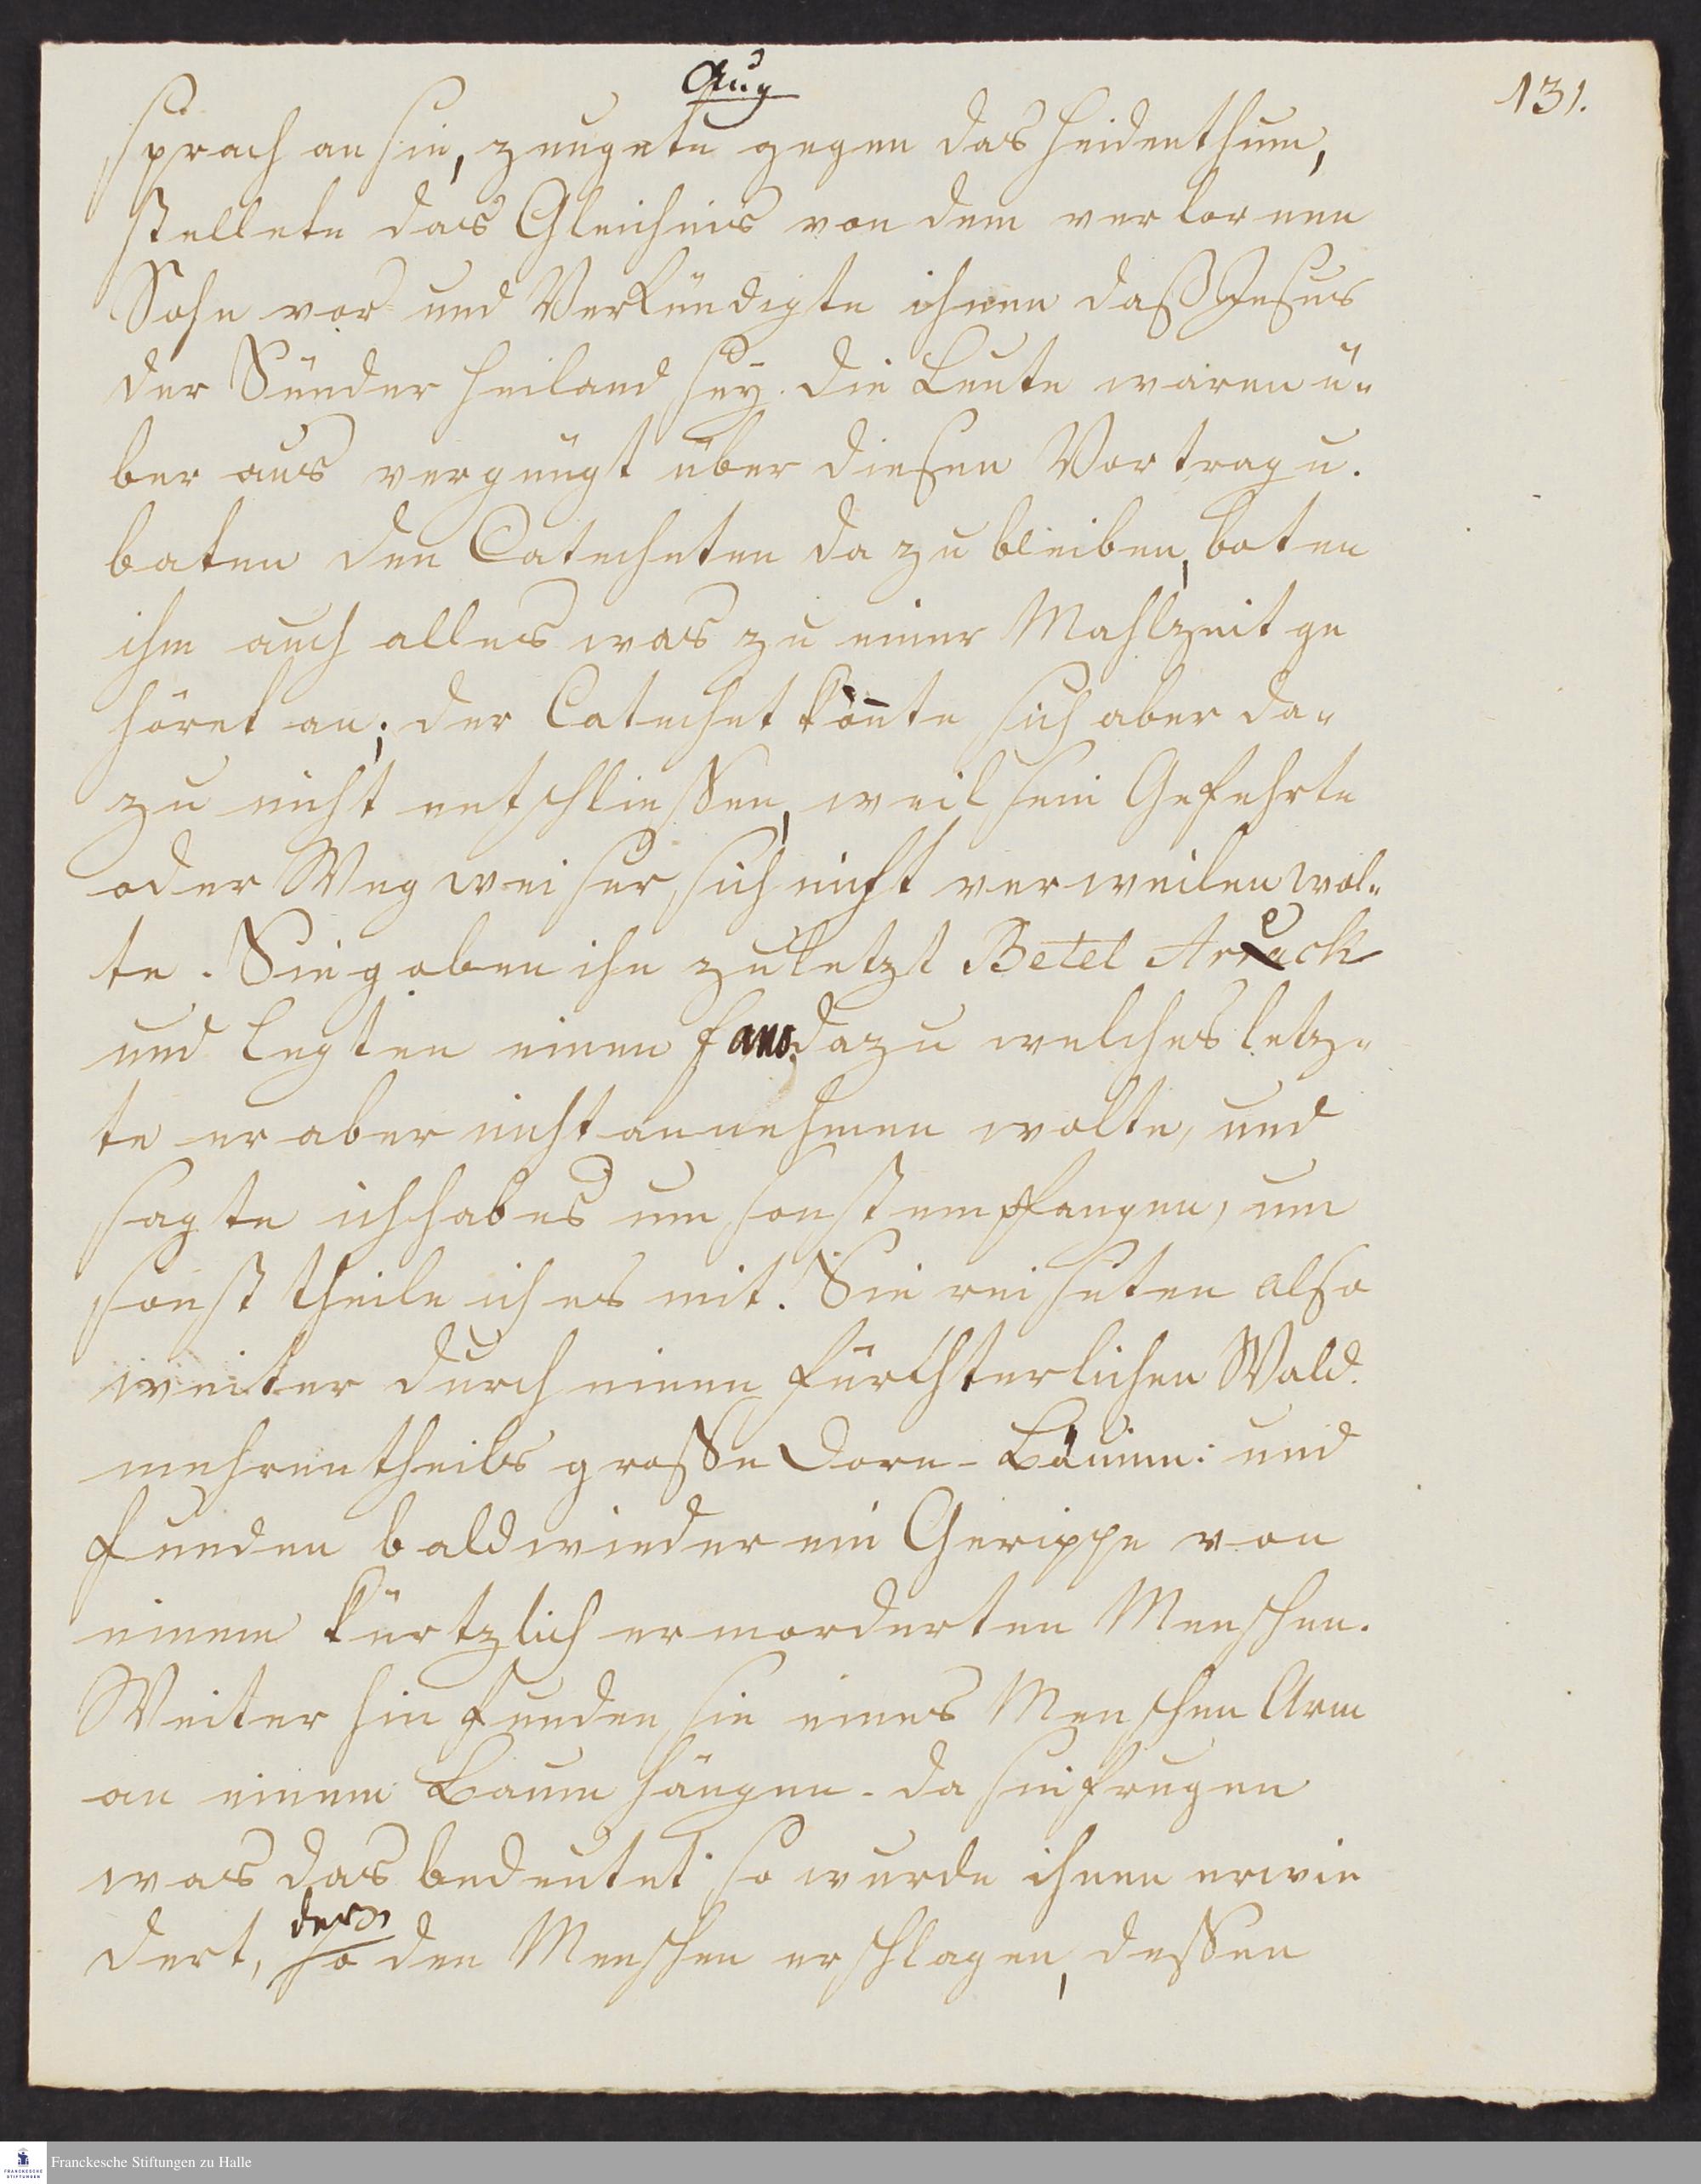 Aug
131.
sprach an sie, zeugete gegen das Heidenthum,
stellete das Gleichnis von dem verlornen
Sohn vor und Verkündigte ihnen daß Jesus
der Sünder Heiland sey. Die Leute waren ü-
ber aus vergnügt über diesen Vortrag u.
baten den Catecheten da zu bleiben, boten
ihm auch alles was zu einer Mahlzeit ge
höret an; der Catechet konte sich aber da-
zu nicht entschliessen, weil sein Gefehrte
oder Wegweiser sich nicht verweilen wol-
te. Sie gaben ihn zuletzt Betel Areck
und legten einen fano dazu welches letz-
te er aber nicht annehmen wolte, und
sagte ich habes um sonst empfangen, um
sonst theile ich es mit. Sie reiseten also
weiter durch einen fürchterlichen Wald
mehrentheils grosse Dorn-Bäume: und
funden bald wieder ein Gerippe von
einem kürtzlich ermorderten Menschen.
Weiter hin funden sie eines Menschen Arm
an einem Baum hängen. da sie frugen
was das bedeutet so wurde ihnen erwie
dert, so den Menschen erschlagen, dessen
Franckesche Stiftungen zu Halle